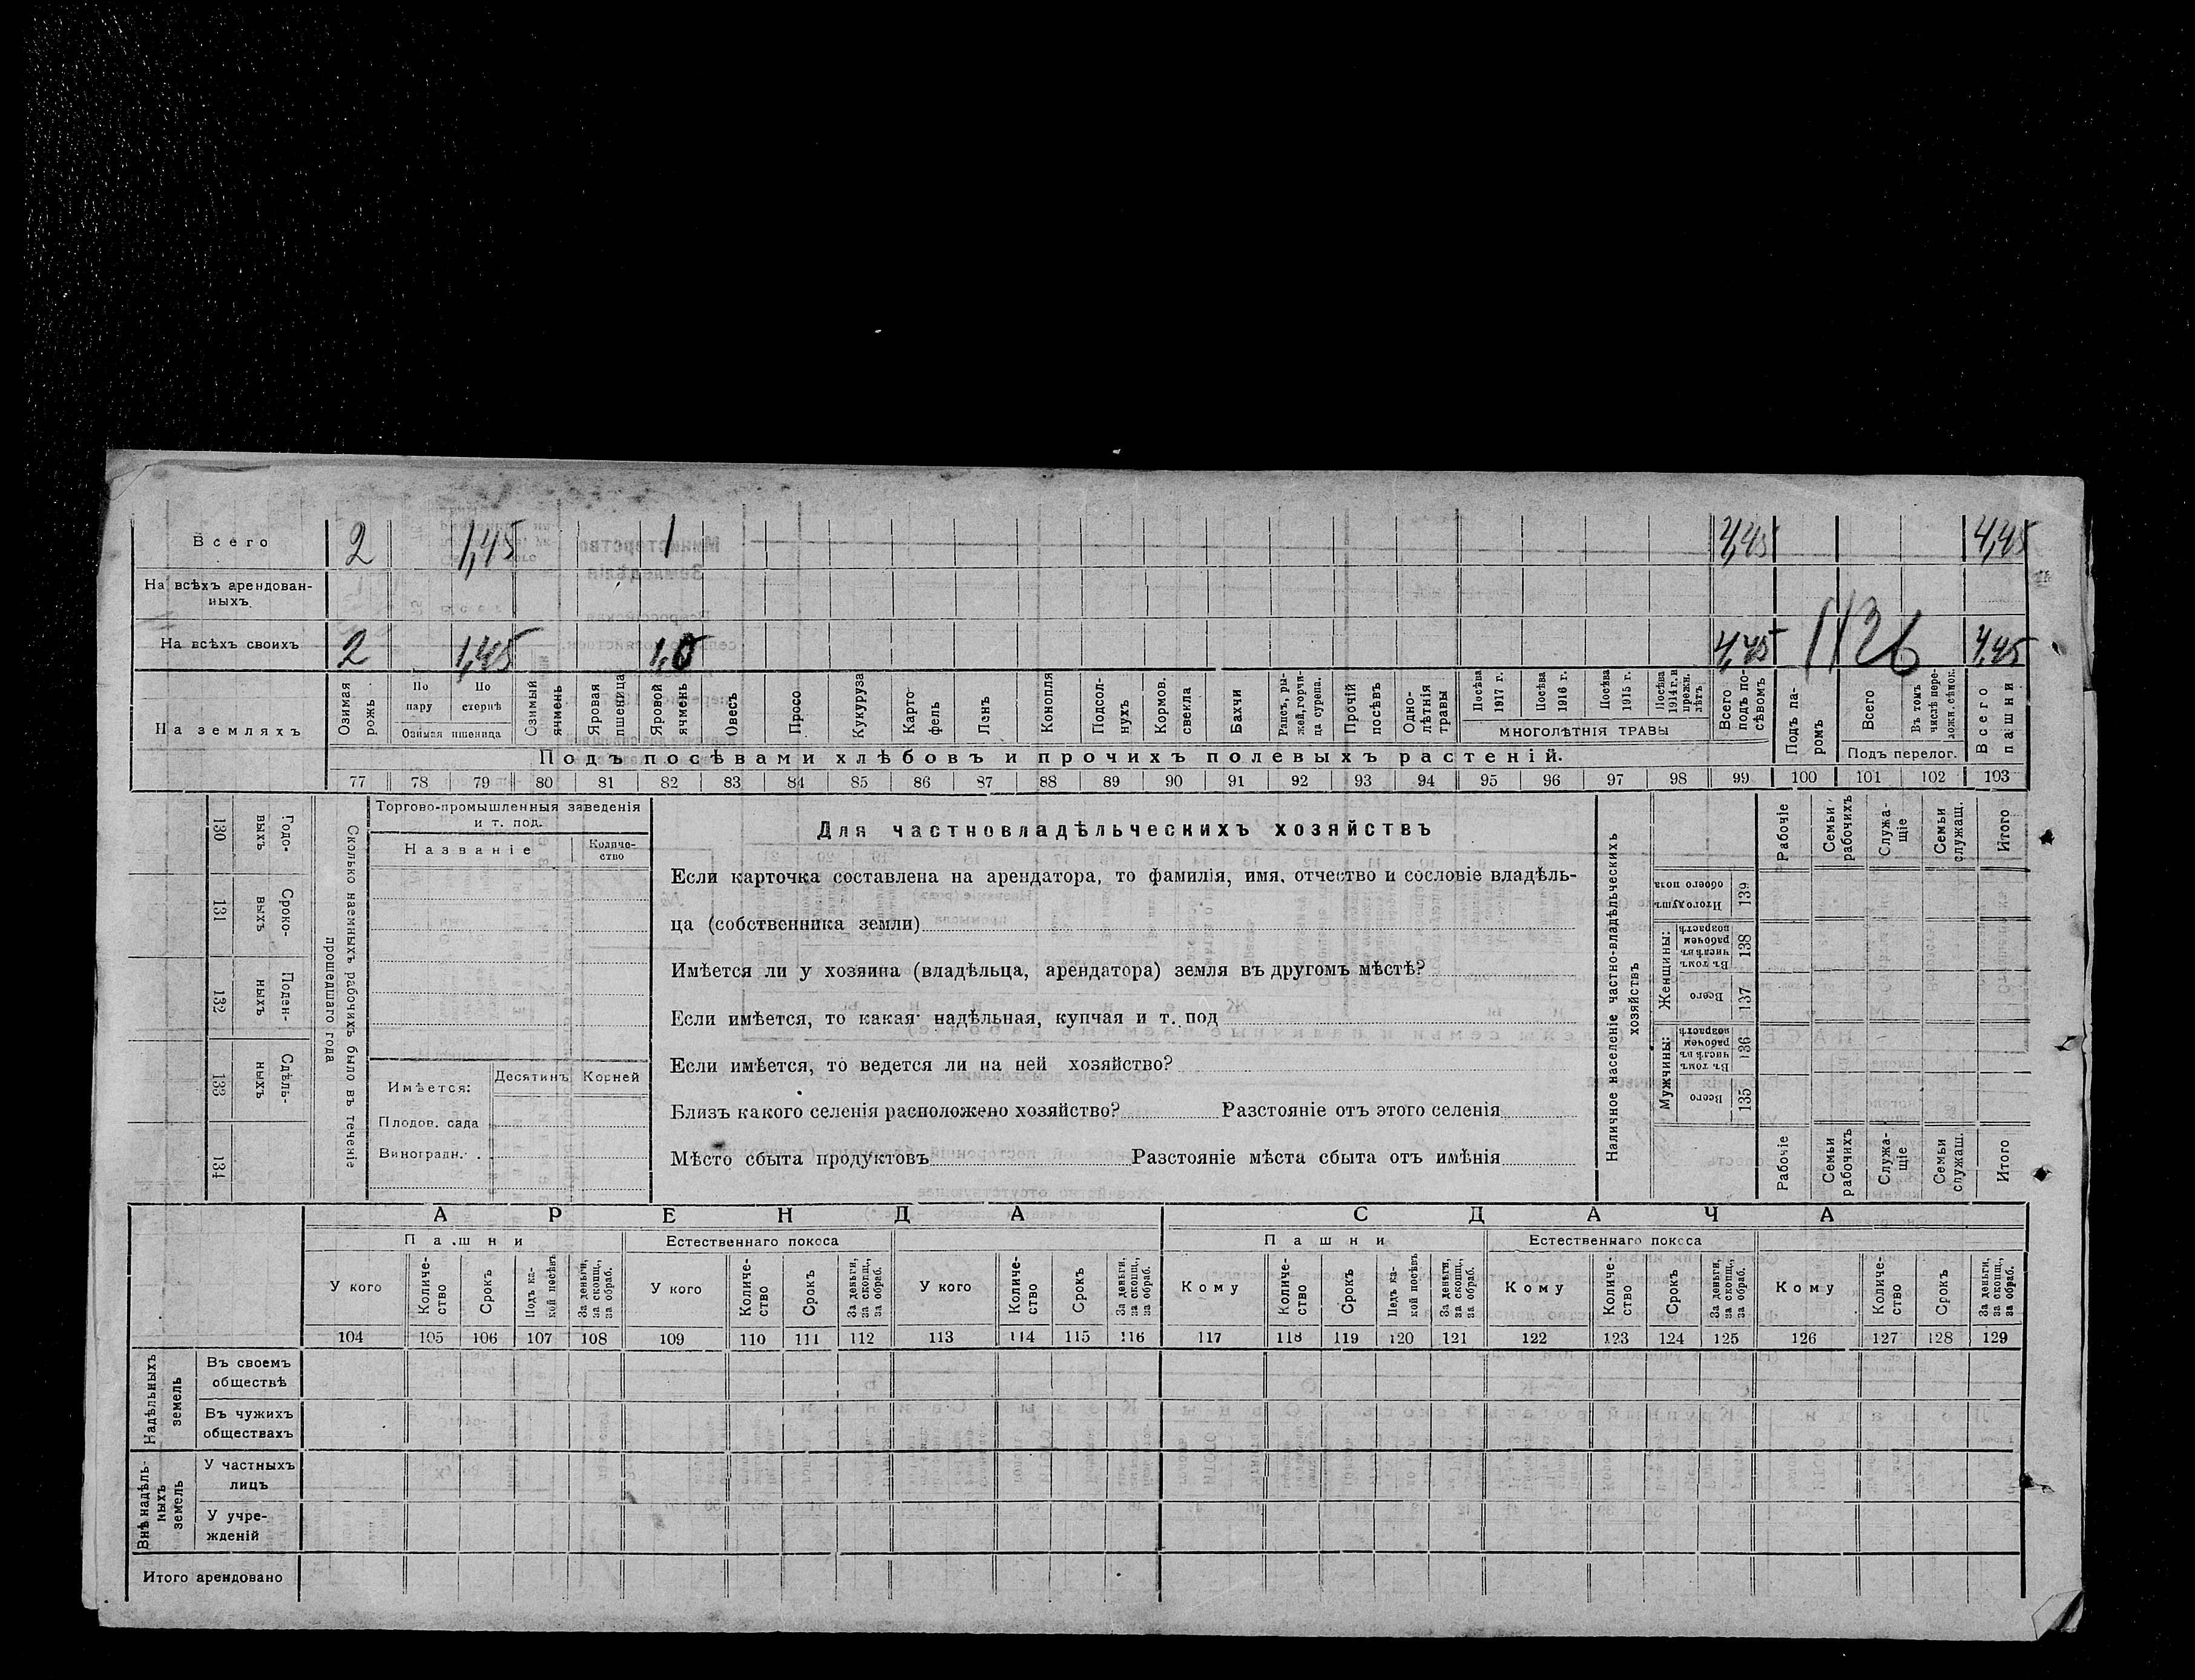 Всего 2 1,45 1 4,45 4,45
На всѣхъ арендован-
ныхъ.
На всѣхъ своихъ 2 1,45 1,0 4,45 1126 4,45
На земляхъ
Озимая рожь.
По пару
По стернѣ
Озимая пшеница
Озимый ячмень
Яровая пшеница
Яровой ячмень
Овесъ
Просо
Кукуруза
Карто
фель
Ленъ
Конопля
Подсол-
нухъ
Кормов. свекла
Бахчи
Рапсъ, ры-
жей, горчи-
ца сурепа.
Прочій посѣвъ
Одно-
лѣтнія травы
Посѣва 1917 г.
Посѣва 1916 г.
Посѣва 1915 г.
Посѣва 1914 г. и прежн. лѣтъ
МНОГОЛѢТНІЯ ТРАВЫ
Всего подъ по-
сѣвомъ
Подъ па-
ромъ
Всего
Въ томъ числѣ пере-
ложн. сѣнок.
Подъ перелог.
Всего пашни
Подъ посѣвами хлѣбовъ и прочихъ полевыхъ растеній.
77 78 79 80 81 82 83 84 85 86 87 88 89 90 91 92 93 94 95 96 97 98 99 100 101 102 103
130 Годо-
выхъ
131 Сроко-
выхъ
132 Поден-
ныхъ
133 Сдѣль-
ныхъ
134
Сколько наемныхъ рабочихъ было въ теченіе
прошедшаго года
Торгово-промышленныя заведенія
и т. под.
Названіе
Количе-
ство
Имѣется: Десятинъ Корней
Плодов. сада
Виноградн.
Для частновладѣльческихъ хозяйствъ
Если карточка составлена на арендатора, то фамилія, имя, отчество и сословіе владѣль-
ца (собственника земли)
Имѣется ли у хозяина (владѣльца, арендатора) земля въ другомъ мѣстѣ?
Если имѣется, то какая: надѣльная, купчая и т. под
Если имѣется, то ведется ли на ней хозяйство?
Близъ какого селенія расположено хозяйство? Разстояніе отъ этого селенія
Мѣсто сбыта продуктовъ Разстояніе мѣста сбыта отъ имѣнія
Наличное населеніе частно-владѣльческихъ
хозяйствъ
Рабочіе
Семьи рабочихъ
Служа-
щіе
Семьи служащ.
Итого
Итого душъ обоего пола 139
Женщины:
Въ томъ числѣ въ рабочемъ возрастѣ 138
Всего 137
Мужчины:
Въ томъ числѣ въ рабочемъ возрастѣ 136
Всего 135
Рабочіе
Семьи рабочихъ
Служа-
щіе
Семьи служащ.
Итого
АРЕНДА СДАЧА
Пашни Естественнаго покоса Пашни Естественнаго покоса
У кого
Количе-
ство
Срокъ
Подъ ка-
кой посѣвъ
За деньги, за скопщ., за обраб.
У кого
Количе-
ство
Срокъ
За деньги, за скопщ., за обраб.
У кого
Количе-
ство
Срокъ
За деньги, за скопщ., за обраб.
Кому
Количе-
ство
Срокъ
Подъ ка-
кой посѣвъ
За деньги, за скопщ., за обраб.
Кому
Количе-
ство
Срокъ
За деньги, за скопщ., за обраб.
Кому
Количе-
ство
Срокъ
За деньги, за скопщ., за обраб.
104 105 106 107 108 109 110 111 112 113 114 115 116 117 118 119 120 121 122 123 124 125 126 127 128 129
Надѣльныхъ
земель
Въ своемъ
обществѣ
Въ чужихъ
обществахъ
Внѣ надѣль-
ныхъ
земель
У частныхъ
лицъ
У учре-
жденій
Итого арендовано